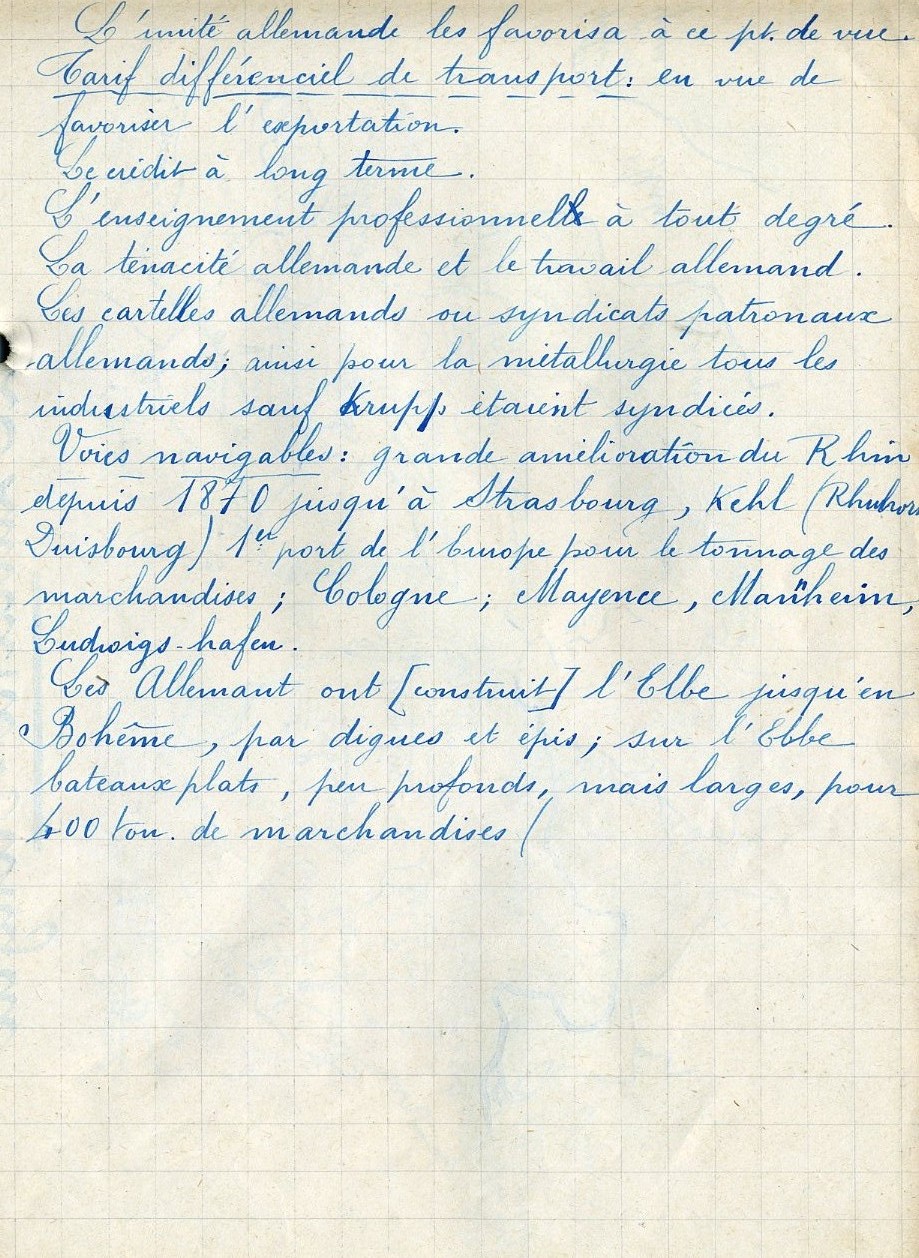 L'unité allemande les favorisa à ce pt. de vue.
Tarif différenciel de transport : en vue de
favoriser l'exportation.
Le crédit à long terme.
L'enseignement professionnel à tout degré.
La ténacité allemande et le travail allemand.
Les cartelles allemands ou syndicats patronaux
allemands ; ainsi pour la métallurgie tous les
industriels sauf Krupp étaient syndicés.
Voies navigables : grande amélioration du Rhin
depuis 1870 jusqu'à Strasbourg, Kehl (Rhuhrort
Duisbourg) 1er port de l'Europe pour le tonnage des
marchandises ; Cologne ; Mayence, Manheim,
Ludwigs-hafen.
Les Allemant ont [construit] l'Elbe jusqu'en
Bohême, par digues et épis ; sur l'Elbe
bateaux plats, peu profonds, mais larges, pour
400 ton. de marchandises (